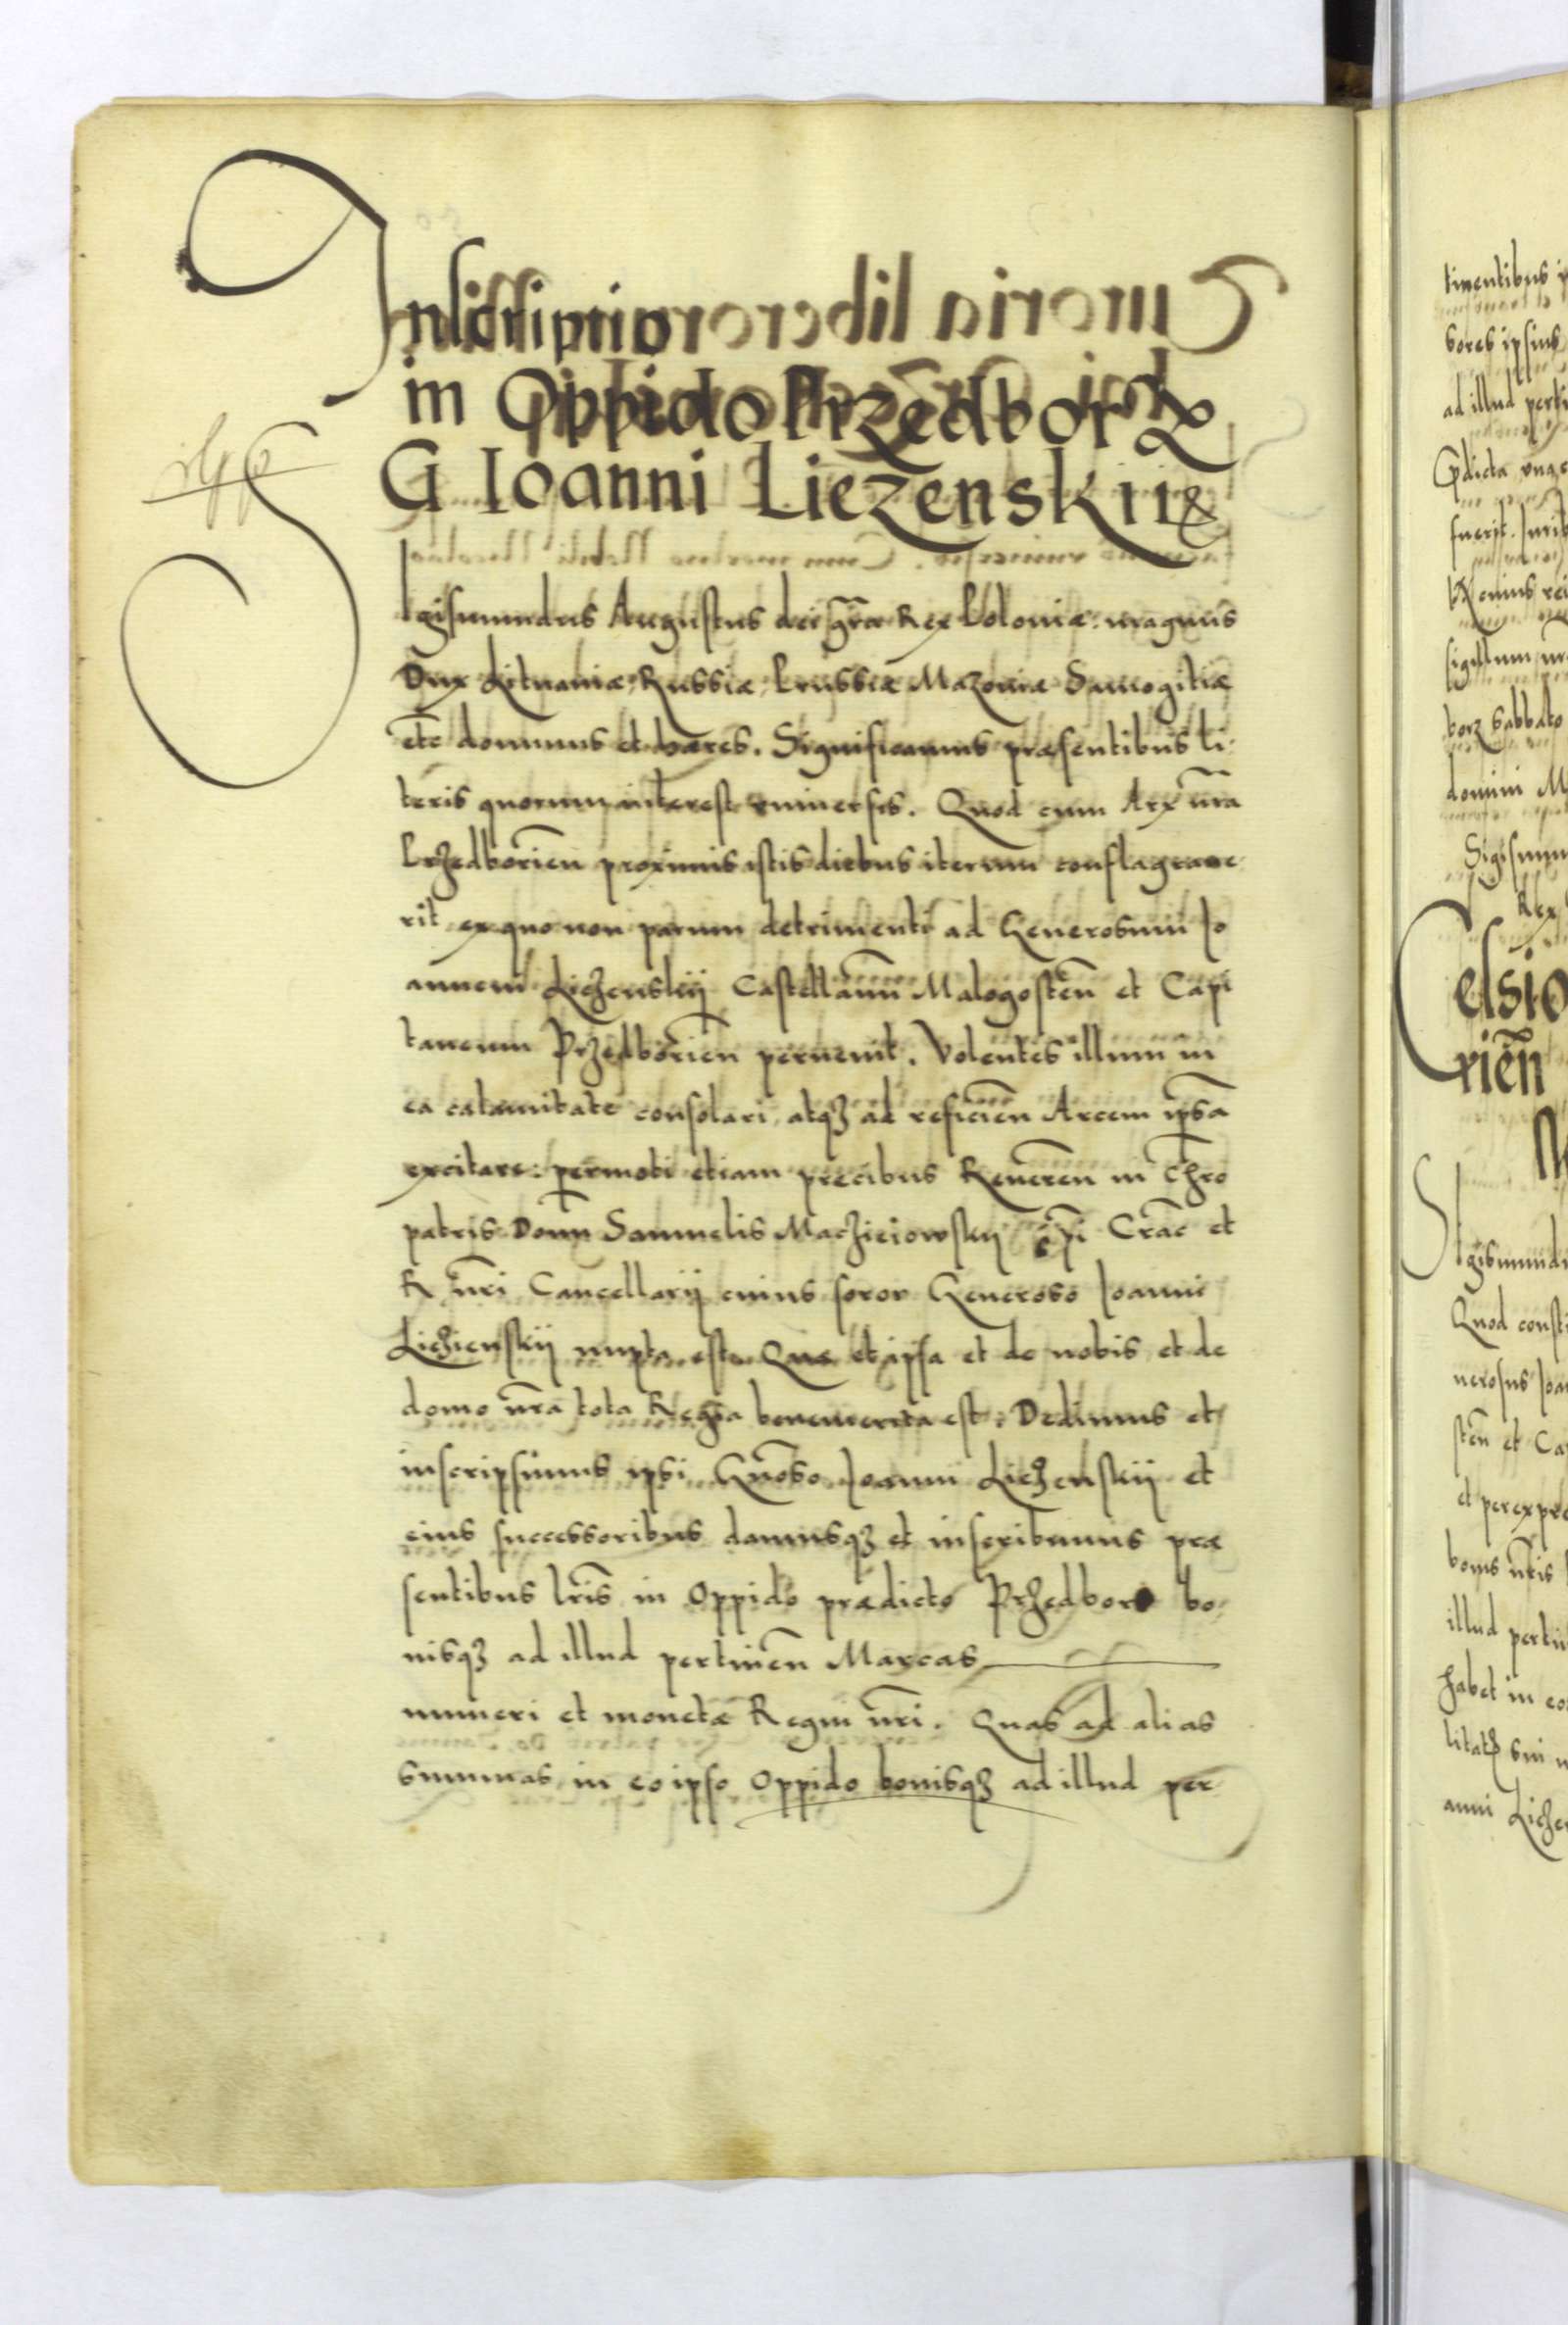 Inscriptio
in Oppido Przedbor &
G Ioanni Liezenskii &
Sigismundus Augustus dei gr̃a Rex Poloniæ. magnus
Dux Lituaniæ, Russiæ, Prussiæ Mazoviæ Samogitiæ
etc̃ dominus et hæres. Significamus præsentibus li-
teris quorum interest universis. Quod cum Arx nr̃a
Przedborien̄ proximis istis diebus iterum conflagrave-
rit ex quo non parum detrimenti ad Generosum Jo
annem Liezenskij Castellanū Malogosten̄ et Capi
taneum Przedborien̄ pervenit. Volentes illum in
ea calamitate consolari, atqȝ ad reficien̄ Arcem ipsã
excitare: permoti etiam precibus Reveren̄ in Chr̃o
patris Domn̄ Samuelis Maczieiowskij Ep̃i Crac̃ et
R nr̃i Cancellarij cuius soror Generoso Joanni
Liezienskij nupta est. Quæ et ipsa et de nobis et de
domo nr̃a tota Regia benemerita est. Dedimus et
inscripsimus ipsi Gn̄oso Joanni Liezenskij et
eius successoribus damusqȝ et inscribimus præ
sentibus lr̃is in Oppido prædicto Przedbor bo-
nisqȝ ad illud pertinen̄ Marcas
numeri et monetæ Regni nr̃i. Quas ad alias
summas in eo ipso Oppido bonisqȝ ad illud per-
tinentibus
sores ipsius
ad illud perti
fuerit.
sigillum
borz sabbato
domini M
Sigismun
Rex
Celsio
rien̄
Sigismundu
Quod consti
nerosus Joa
sten̄ et Ca
et per expre
bonis nr̃is
illud pertin
habet in eo
anni Liezen